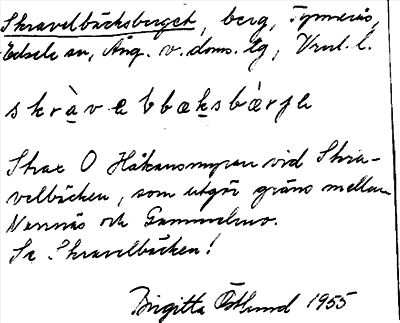 Skravelbäcksberget, berg,
Edsele sn, Ång. v. doms. lg,
skràvelbbæksbàrje
Strax O Håkansmyran vid Skra-
velbäcken, som utgör gräns mellan
och
Se Skravelbäcken!
Birgitta Östlund 1955